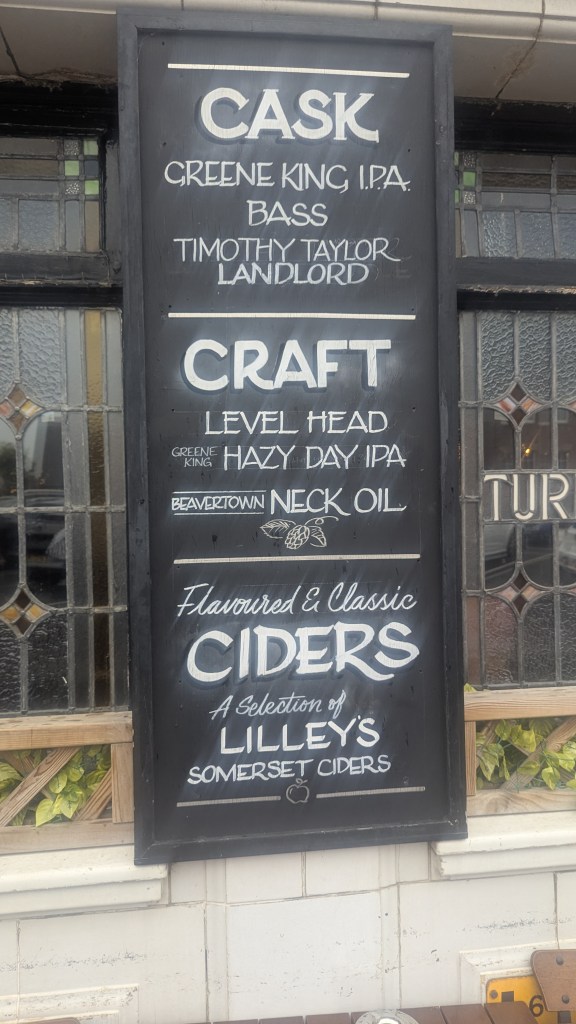 CASK
GREENE KING I.P.A.
BASS
TIMOTHY TAYLOR
LANDLORD
CRAFT
LEVEL HEAD
GREENE KING HAZY DAY IPA
BEAVERTOWN NECK OIL
Flavoured & Classic
CIDERS
A Selection of
LILLEY'S
SOMERSET CIDERS
TUR
6